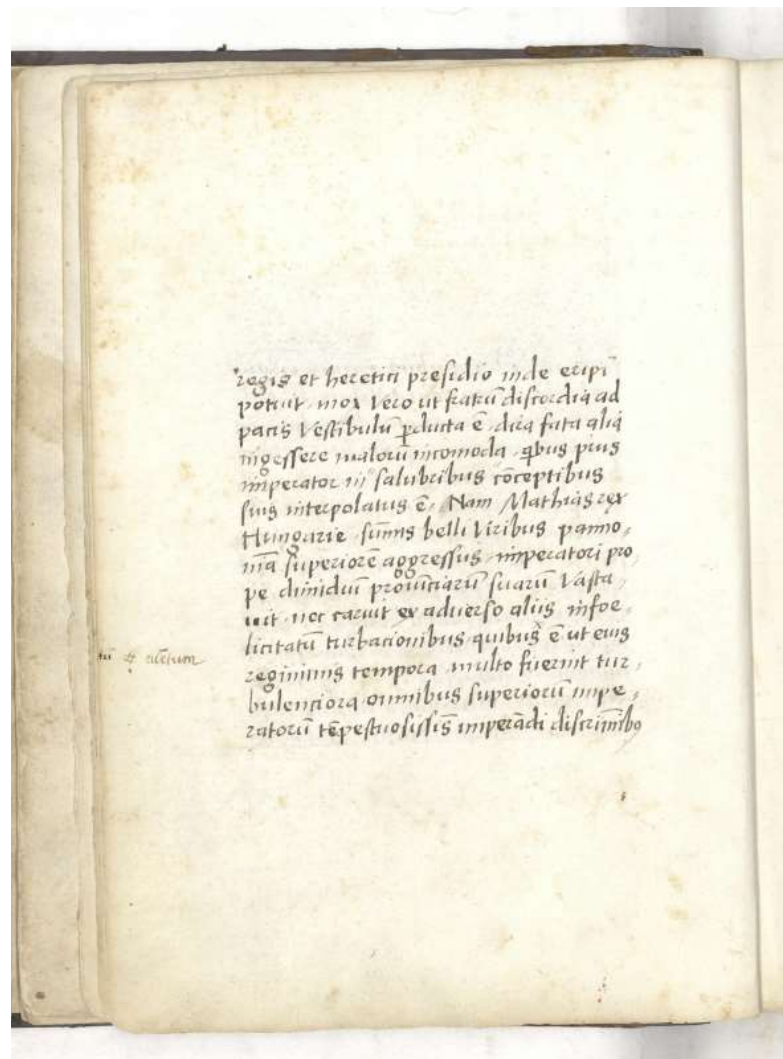 regis et heretici presidio inde eripi
potuit mox vero ut fratrū discordia ad
pacis vestibulū ꝑducta ē, dira fata aliā
ingessere malorū incomoda, qͥbus pius
imperator in salubribus cōceptibus
suis interpolatus ē, Nam Mathias rex
Hungarie sūmis belli viribus panno,
niā superiorē aggressus, imperatori pro
pe dimidiū provinciarū suarū vasta,
uit, nec caruit ex adverso aliis infoe,
licitatū turbacionibus, quibus ē ut eius
regiminis tempora multo fuerint tur,
bulenciora omnibus superiorū impe,
ratorū tēpestuosissīs imperādi discrīmībꝰ